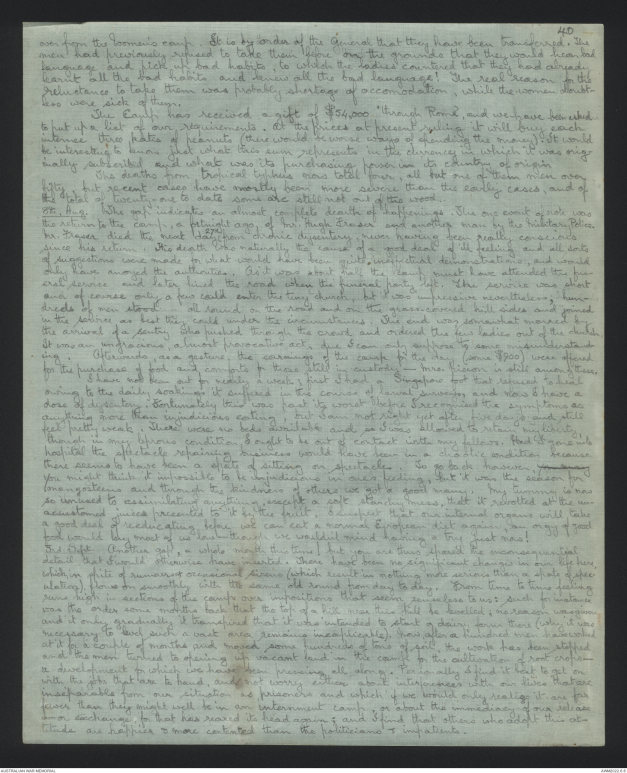 40
over from the Women's camp. It is by order of the General that they have been transferred. The
men had previously refused to take them before on the grounds that they would hear bad
language and pick up bad habits, to which the ladies countered that they had already
learnt all the bad habits and knew all the bad language! The real reason for the
reluctance to take them was probably shortage of accomodation while the women doubt-
less were sick of them.
The Camp has received a gift of $54,000 "through Rome", and we have been asked
to put up a list of our requirements. At the prices at present ruling it will buy each
internee three katis of peanuts (there would be worse ways of spending the money). It would
be interesting to know just what this sum represents in the currency in which it was orig-
inally subscribed and what was its purchasing power in its country of origin.
The deaths from tropical typhus now total four, all but one of them men over
fifty, but recent cases have mostly been more severe than the early cases, and of
the total of twenty-one to date some are still not out of the wood.
8th. Aug. The gap indicates an almost complete dearth of happenings. The one event of note was
the return to the camp, a fortnight ago, of Mr. Hugh Fraser and another man by the Military Police.
Mr. Fraser died the next day from chronic dysentery, never having been really conscious
since his return. His death was naturally the cause of a good deal of ill feeling, and all sorts
of suggestions were made for what would have been quite ineffectual demonstrations, and would
only have annoyed the authorities. As it was about half the camp must have attended the fu-
neral service and later lined the road when the funeral party left. The service was short
and of course only a few could enter the tiny church, but it was impressive nevertheless, hun-
dreds of men stood all round, on the road and on the grass-covered hill sides and joined
in the service as best they could under the circumstances. The end was somewhat marred by
the arrival of a sentry who pushed through the crowd and ordered the few ladies out of the church.
It was an ungracious, almost provocative act, due I can only suppose to some misunderstand-
ing. Afterwards, as a gesture, the earnings of the camp for the day (some $900) were offered
for the purchase of food and comforts for those still in custody - Mrs. Nixon is still among these.
I have not been out for nearly a week; first I had a Singapore foot that refused to heal
owing to the daily soakings it suffered in the course of aerial surveying and now I have a
dose of dysentery. Fortunately this was past its worst before I recognised the symptoms as
anything more than injudicious eating, but I am not right yet after five days and still
feel pretty weak. There were no beds available and so I was allowed to retain my liberty,
though in my leprous condition I ought to be out of contact with my fellows. Had I gone into
hospital the spectacle repairing business would have been in a chaotic condition because
there seems to have been a spate of sitting on spectacles. To go back however,
you might think it impossible to be injudicious in one's feeding, but it was the season for
mangosteens and through the kindness of others we got a good many. My tummy is now
so unused to assimilating anything except a soft starchy mess, that it revolted at the un-
accustomed juices presented to it by the fruit. I suspect that our internal organs will take
a good deal of reeducating before we can eat a normal European diet again; an orgy of good
food would lay most of us low though we wouldn't mind having a try just now!
3rd Sept. Another gap, a whole month this time! but you are thus spared the inconsequential
detail that I would otherwise have inserted. There have been no significant changes in our life here,
which, in spite of rumours & occasional alarms (which result in nothing more serious than a spate of spec-
ulation), flows on smoothly with the same old round from day to day. From time to time feeling
runs high in sections of the camp over impositions that seem needless to us; such for instance
was the order some months back that the top of a hill near this still be levelled; no reason was given
and it only gradually it transpired that it was intended to start a dairy farm there (why it was
necessary to level such a vast area remains inexplicable). Now after a hundred men have worked
at it for a couple of months and moved some hundreds of tons of soil, the work has been stopped
and the men turned to opening up vacant land in the camp for the cultivation of root crops -
a development for which we have been pressing all along. Personally I find it best to get on
with the jobs that are to hand, and not worry either about interferences with our lives that are
inseparable from our situation as prisoners and which if we would only realise it are far
fewer than they might well be in an internment camp, or about the immediacy of our release
- or exchange, for that has reared its head again; and I find that others who adopt this at-
titude are happier & more contented than the politicians & impatients.
AUSTRALIAN WAR MEMORIAL